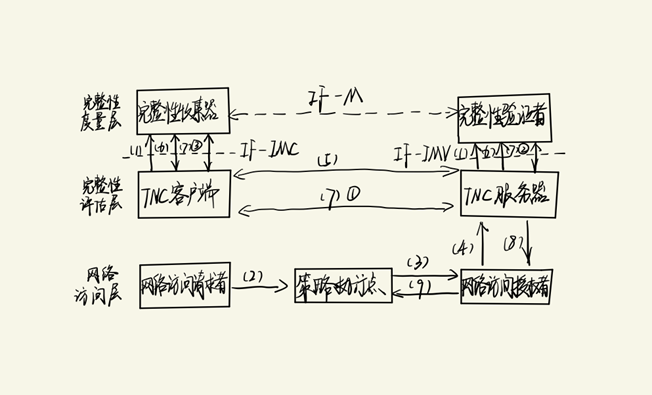 完整性
度量层
完整性收集器
IF-M
完整性验证者
(1) (6) (7)② IF-IMC
(5)
IF-IMV (1) (6) (7)②
完整性
评估层
TNC客户端
(7)①
TNC服务器
(4)
(8)
网络
访问层
网络访问请求者
(2)
策略执行点
(3)
(9)
网络访问授权者